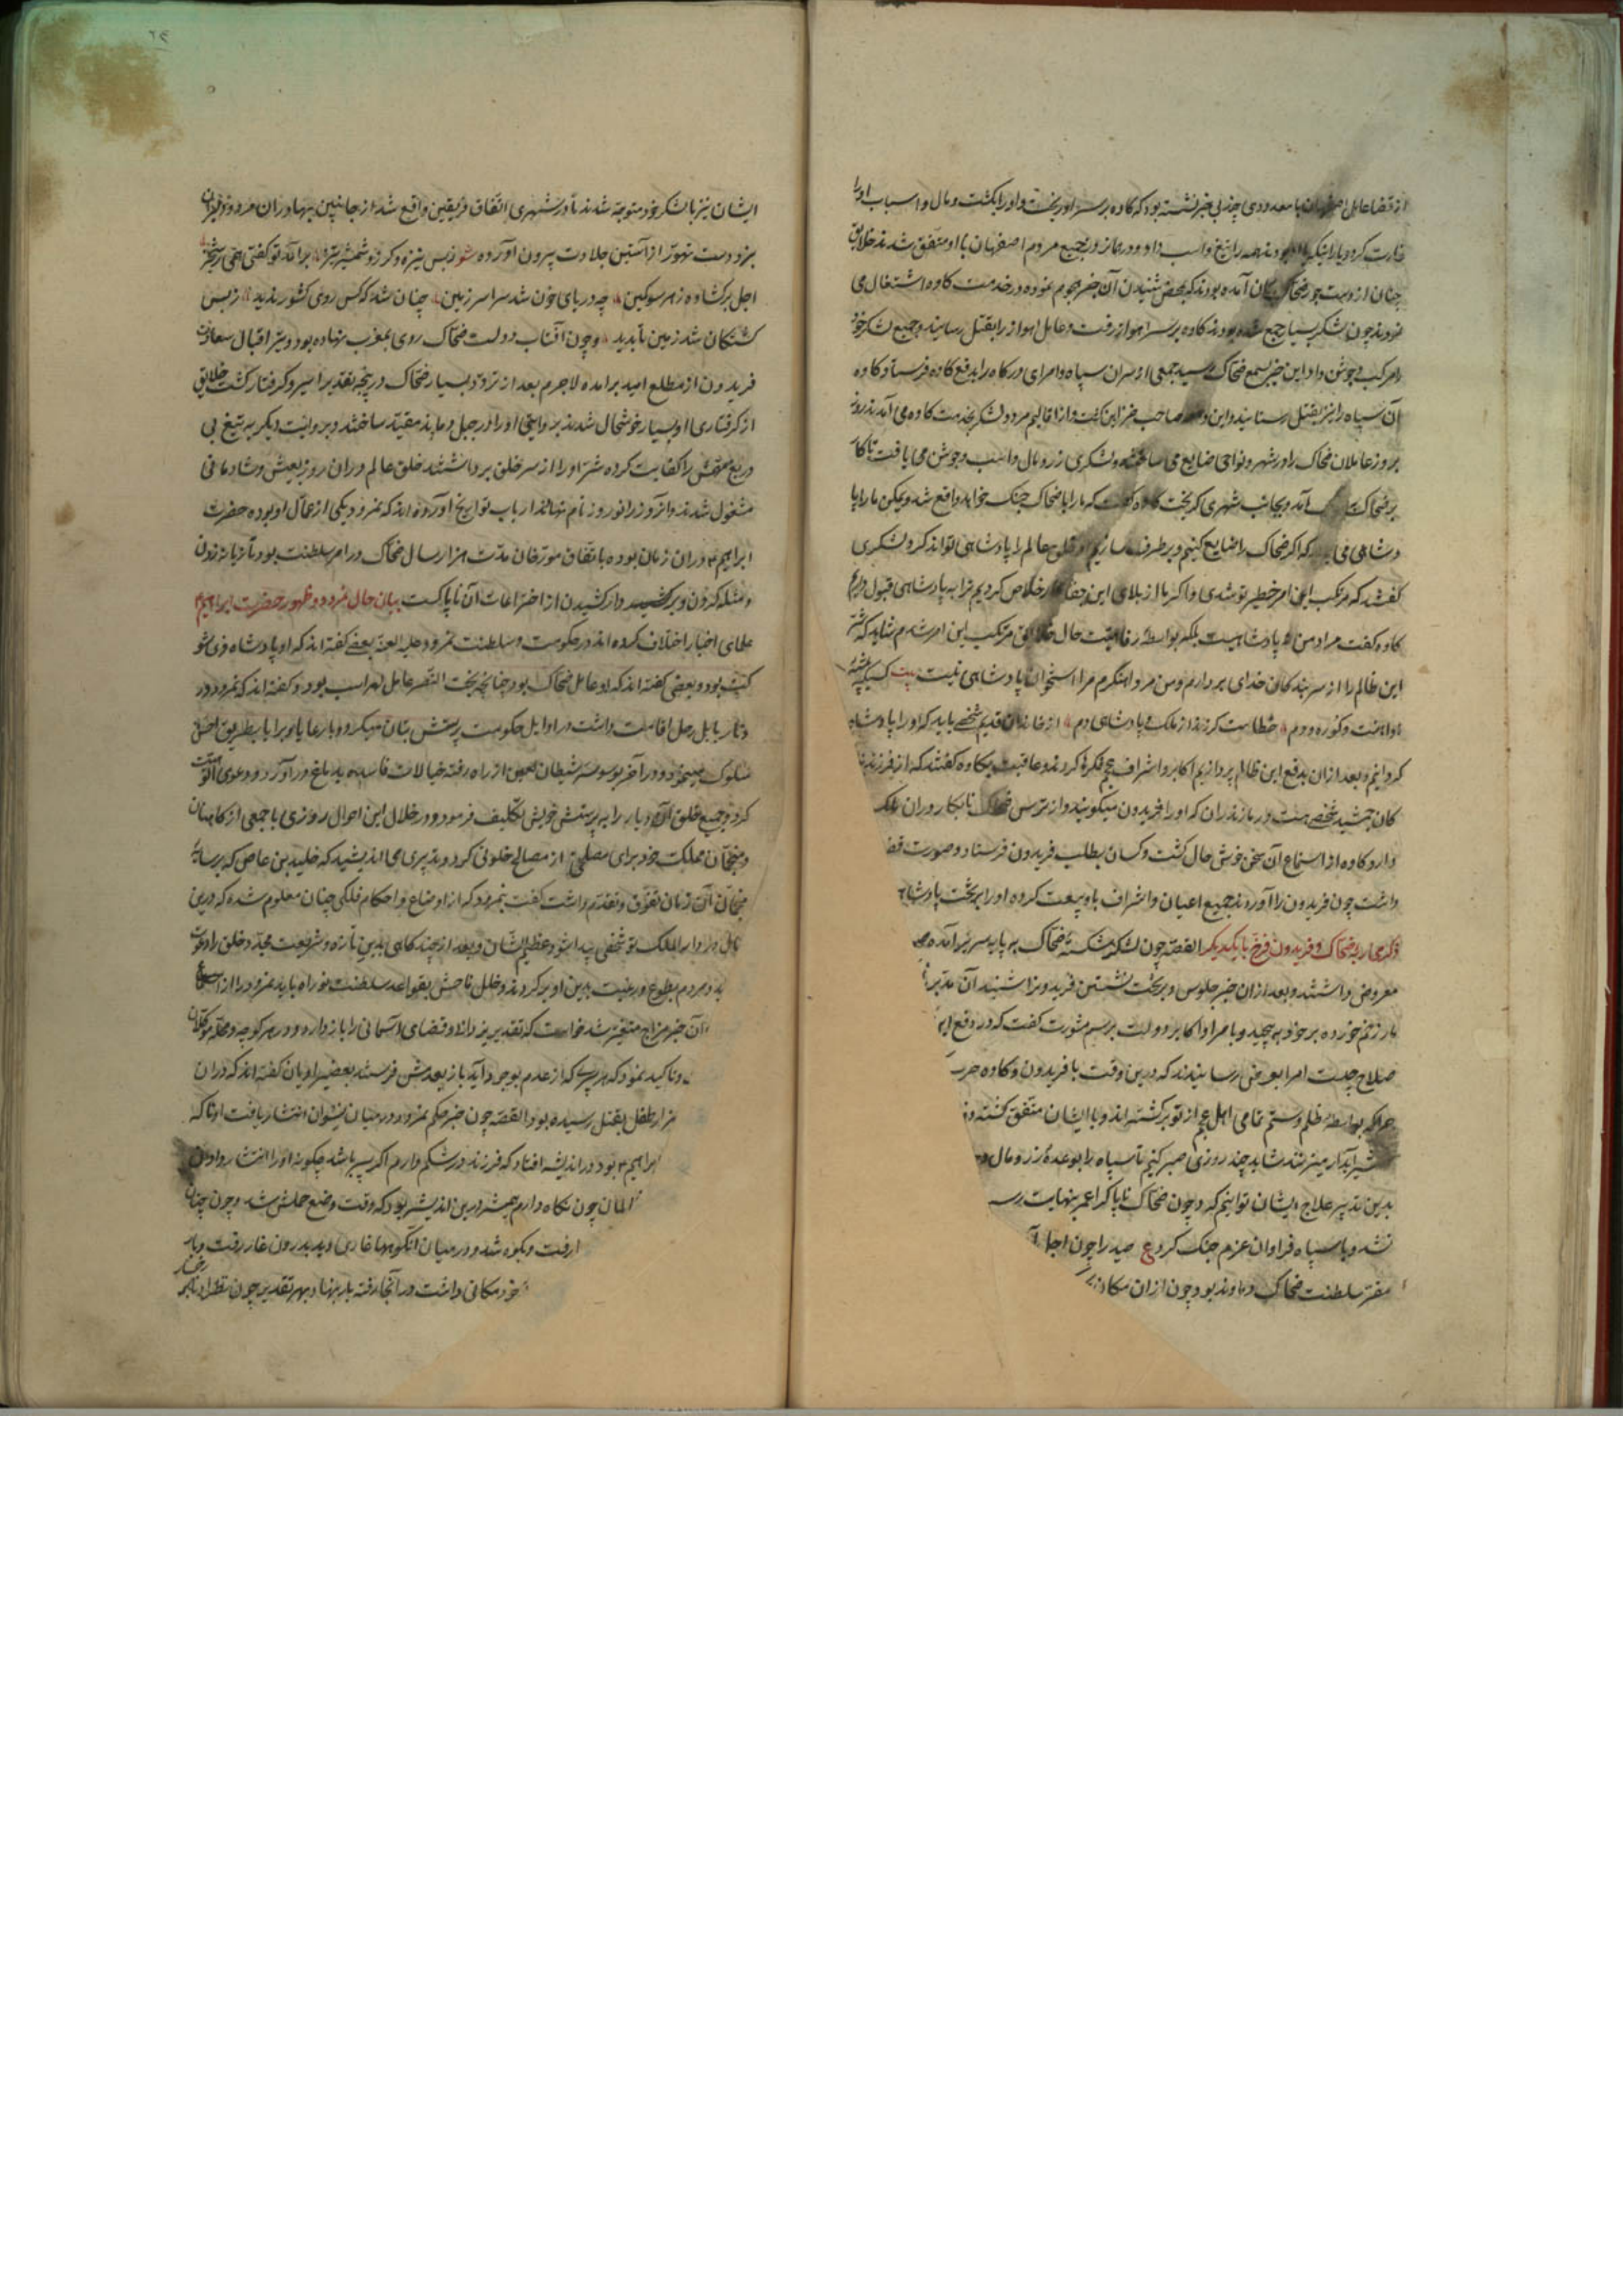 از قضا عامل اصفهان با معدودی چند بی خبر نشسته بود که کاوه بر سر او ریخت و او را بکشت و مال و اسباب او را
غارت کرد و یارانیکه با او بودند همه را تیغ و اسب داد و در همانروز جمیع مردم اصفهان با او متفق شدند خلایق
چنان از دست جور ضحاک بجان آمده بودند که بمحض شنیدن آن خبر هجوم نموده در خدمت کاوه اشتغال می
نمودند چون لشکر بسیار جمع شده بودند کاوه بر سر اهواز رفت و عامل اهواز را بقتل رسانید و جمیع لشکر خود
را مرکب و جوشن داد این خبر بسمع ضحاک رسید جمعی از سران سپاه و امرای درکاه را بدفع کاوه فرستاد کاوه
آن سپاه را نیز بقتل رسانید و این صاحب خزاین کشت و از اقالیم مرد و لشکر بخدمت کاوه می آمدند روز
بروز عاملان ضحاک را در شهر و نواحی ضایع می ساختند و لشکری از زر و مال و اسب و جوشن می یافت تا کار
بر ضحاک آمد و بجانب شهری کریخت کاوه کفت که ما را با ضحاک جنک خواهد واقع شد و لیکن ما را پا
دشاهی می باید که اکر ضحاک را ضایع کنیم و بر طرف سازیم او خلق عالم را پادشاهی تواند کرد لشکری
کفتند که مرتکب این امر خطیر تو شدی و اکر ما از بلای این جفاکار خلاص کردیم ترا به پادشاهی قبول داریم
کاوه کفت مراد من نه پادشاهیست بلکه بواسطه رفاهیت حال خلایق مرتکب این امر شدم شاید که شر
این ظالم را از سر بندکان خدای بردارم و من مرد اهنکرم مرا استخوان پادشاهی نیست بیت کسیکه پیشه
او آهنست و کوره و دم خطاست کر زند از ملک و پادشاهی دم از خاندان قدیم شخصی باید که او را پادشاه
کردانیم و بعد ازان بدفع این ظالم پردازیم اکابر و اشراف عجم فکرها کردند و عاقبت بکاوه کفتند که از فرزندزا
کان جمشید شخصی هست در مازندران که او را فریدون میکویند و از ترس ضحاک نابکار در ان ملک
دارد کاوه از استماع آن سخن خوش حال کشت و کسان بطلب فریدون فرستاد و صورت قضـ
داشت چون فریدون را آوردند جمیع اعیان و اشراف باو بیعت کرده او را بر تخت پادشاه
ذکر محاربه ضحاک و فریدون فرخ با یکدیکر القصه چون لشکر شکسته ضحاک به پایه سریر آمده
معروض داشتند و بعد ازان خبر جلوس و بر تخت نشستن فریدون را شنید آن
مار زخم خورده بر خود به پیچید و با امرا و اکابر دولت برسم مشورت کفت که در دفع ایـ
صلاح چیست امرا بعرض رسانیدند که درین وقت با فریدون و کاوه حر
چرا که بواسطه ظلم و ستم تمامی اهل عجم از تو برکشته اند و با ایشان متفق کشته و
شیر آبدار میزنند شاید چند روزی صبر کنیم تا سپاه را بوعده زر و مال
بدین تدبیر علاج ایشان توانیم کرد چون ضحاک ناپاک را عمر بنهایت رسـ
نشد و با سپاه فراوان عزم جنک کرد ع صید را چون اجل آ
مقر سلطنت ضحاک دماوند بود چون ازان مکان
ایشان نیز با لشکر خود متوجه شدند تا در شهری اتفاق فریقین واقع شد از جانبین بهادران مرد و دلیران
نبرد دست تهور از آستین جلادت بیرون آورده شعر ز بس نیزه و کرز و شمشیر تیز بر آمد تو کفتی همی رستخیز
اجل بر کشاده ز هر سو کمین چو دریای خون شد سراسر زمین چنان شد که کس روی کشور ندید ز بس
کشتکان شد زمین ناپدید و چون آفتاب دولت ضحاک روی بمغرب نهاده بود و نیر اقبال سعادت
فریدون از مطلع امید برآمده لاجرم بعد از تردد بسیار ضحاک در پنجه تقدیر اسیر و کرفتار کشت خلایق
از کرفتاری او بسیار خوشحال شدند بر وایتی او را در جبل دماوند مقید ساختند و بروایت دیکر به تیغ بی
دریغ مهمش را کفایت کرده شر او را از سر خلق برداشتند خلق عالم دران روز بعیش و شادمانی
مشغول شدند و آنروز را نوروز نام نهادند ارباب تواریخ آورده اند که نمرود یکی از عمال او بوده حضرت
ابراهیم ع دران زمان بوده باتفاق مورخان مدت هزار سال ضحاک در امر سلطنت بود تازیانه زدن
و مثله کردن و بر کشیدن از اختراعات آن ناپاکست بیان حال نمرود و ظهور حضرت ابراهیم ع
علمای اخبار اختلاف کرده اند در حکومت و سلطنت نمرود علیه العنه بعضی کفته اند که او پادشاه ذی شو
کت بود و بعضی کفته اند که او عامل ضحاک بود چنانچه بخت النصر عامل لهراسب بود و کفته اند که نمرود در
دیار بابل رحل اقامت داشت در اوایل حکومت پرستش بتان میکرد و با رعایا و برایا بطریق احسن
سلوک مینمود و در آخر بوسوسه شیطان لعین از راه رفته خیالات فاسده بدماغ در آورد و دعوی الوهیت
کرد و جمیع خلق آن دیار را به پرستش خویش تکلیف فرمود و در خلال این احوال روزی با جمعی از کاهنان
و منجمان مملکت خود برای مصلحتی از مصالح خلوتی کرد و تدبیری می اندیشید که خلید بن عاص که بر سایر
منجمان آن زمان تفوق و تقدم داشت کفت بنمرود که از اوضاع و احکام فلکی چنان معلوم شده که درین
سال در دار الملک تو شخصی پیدا شود عظیم الشان و بعد از چند کاهی بدین تازه و شریعت مجدد خلق را دعوت
ید و مردم بطوع و رغبت بدین او بر کردند و خلل فاحش بقواعد سلطنت تو راه یابد نمرود را از استماع
آن خبر مزاج متغیر شد خواست که تقدیر یزدانی و قضای آسمانی را باز دارد و در هر کوچه و محله موکلان
و تاکید نمود که هر پسری که از عدم بوجود آید باز بعدمش فرستند بعضی راویان کفته اند که دران
هزار طفل بقتل رسیده بود القصه چون خبر حکم نمرود در میان نسوان انتشار یافت
ابراهیم ع بود در اندیشه افتاد که فرزند در شکم دارم اکر پسر باشد چکونه او را
المان چون نکاه دارم همیشه درین اندیشه بود که وقت وضع حملش شد و چون چنان
ا رفت و بکوه شد و در میان آنکوهها غاری دید بدرون غار رفت و بار
خود مکانی داشت در آنجا رفته بار بنهاد بهر تقدیر چون نظر